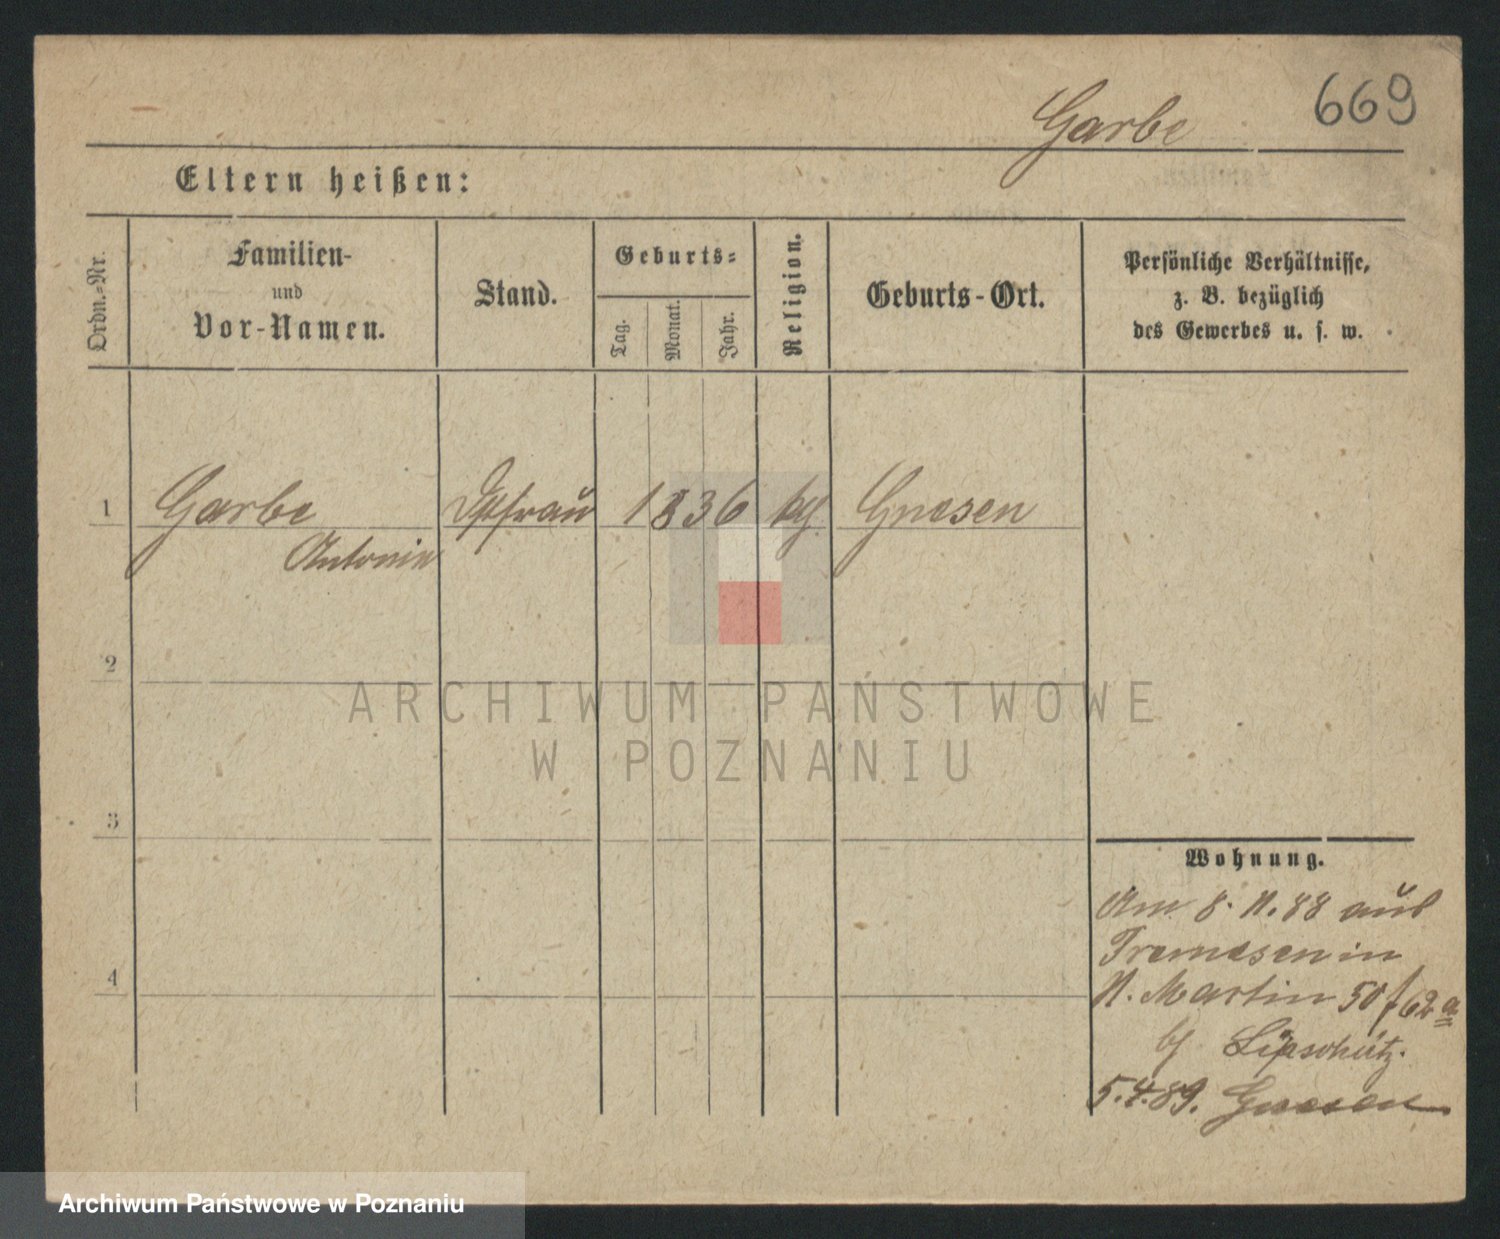 669
Garbe
Eltern heißen:
Ordn.-Nr.
Familien-
und
Vor-Namen.
Stand.
Geburts-
Tag.
Monat.
Jahr.
Religion.
Geburts-Ort.
Persönliche Verhältnisse,
z. B. bezüglich
des Gewerbes u. s. w.
1
Garbe
Antonie
1836
Gnesen
2
ARCHIWUM PAŃSTWOWE
W POZNANIU
3
Wohnung.
Am 8. 11. 88 aus
Tremesen in
Martin 50/62a
4
Lipschütz.
5.4.89. Gnesen
Archiwum Państwowe w Poznaniu